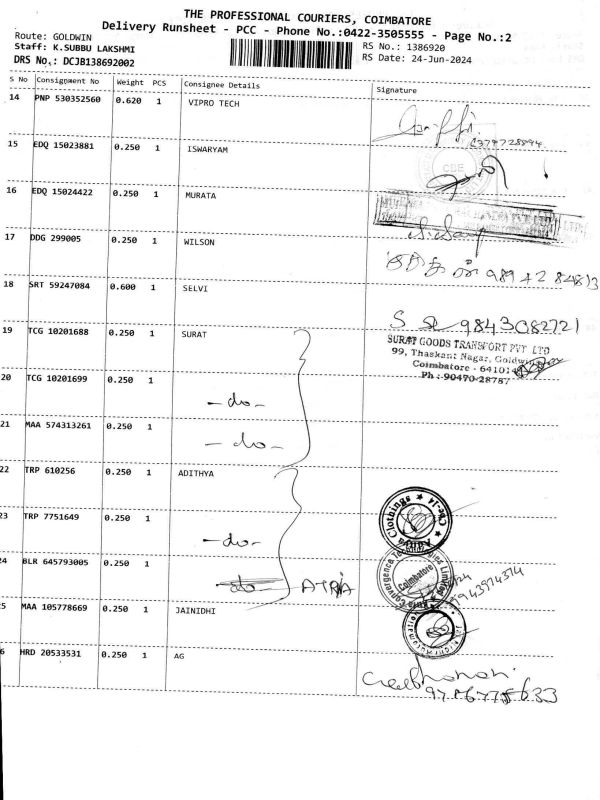 THE PROFESSIONAL COURIERS, COIMBATORE
Delivery Runsheet - PCC - Phone No.:0422-3505555 - Page No.:2
Route: GOLDWIN
Staff: K.SUBBU LAKSHMI
DRS No.: DCJB138692002
RS No.: 1386920
RS Date: 24-Jun-2024
S No Consignment No Weight PCS Consignee Details Signature
14 PNP 530352560 0.620 1 VIPRO TECH
15 EDQ 15023881 0.250 1 ISWARYAM
16 EDQ 15024422 0.250 1 MURATA
17 DDG 299005 0.250 1 WILSON
18 SRT 59247084 0.600 1 SELVI
9843082721
19 TCG 10201688 0.250 1 SURAT
SURAT GOODS TRANSPORT PVT LTD
99, Thaskant Nagar, Goldwins
Coimbatore - 64101
Ph :-90470-28787
20 TCG 10201699 0.250 1
-do-
21 MAA 574313261 0.250 1
-do-
22 TRP 610256 0.250 1 ADITHYA
23 TRP 7751649 0.250 1
-do-
24 BLR 645793005 0.250 1
do ATRIA
Coimbatore
5 MAA 105778669 0.250 1 JAINIDHI
6 HRD 20533531 0.250 1 AG